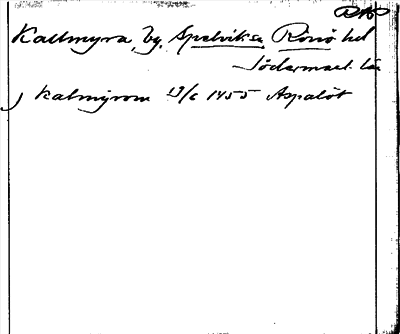 Kallmyra, by, Spelviks sn Rönö hd
Södermanl. län
Kalmyrom 13/6 1455 Aspelöt